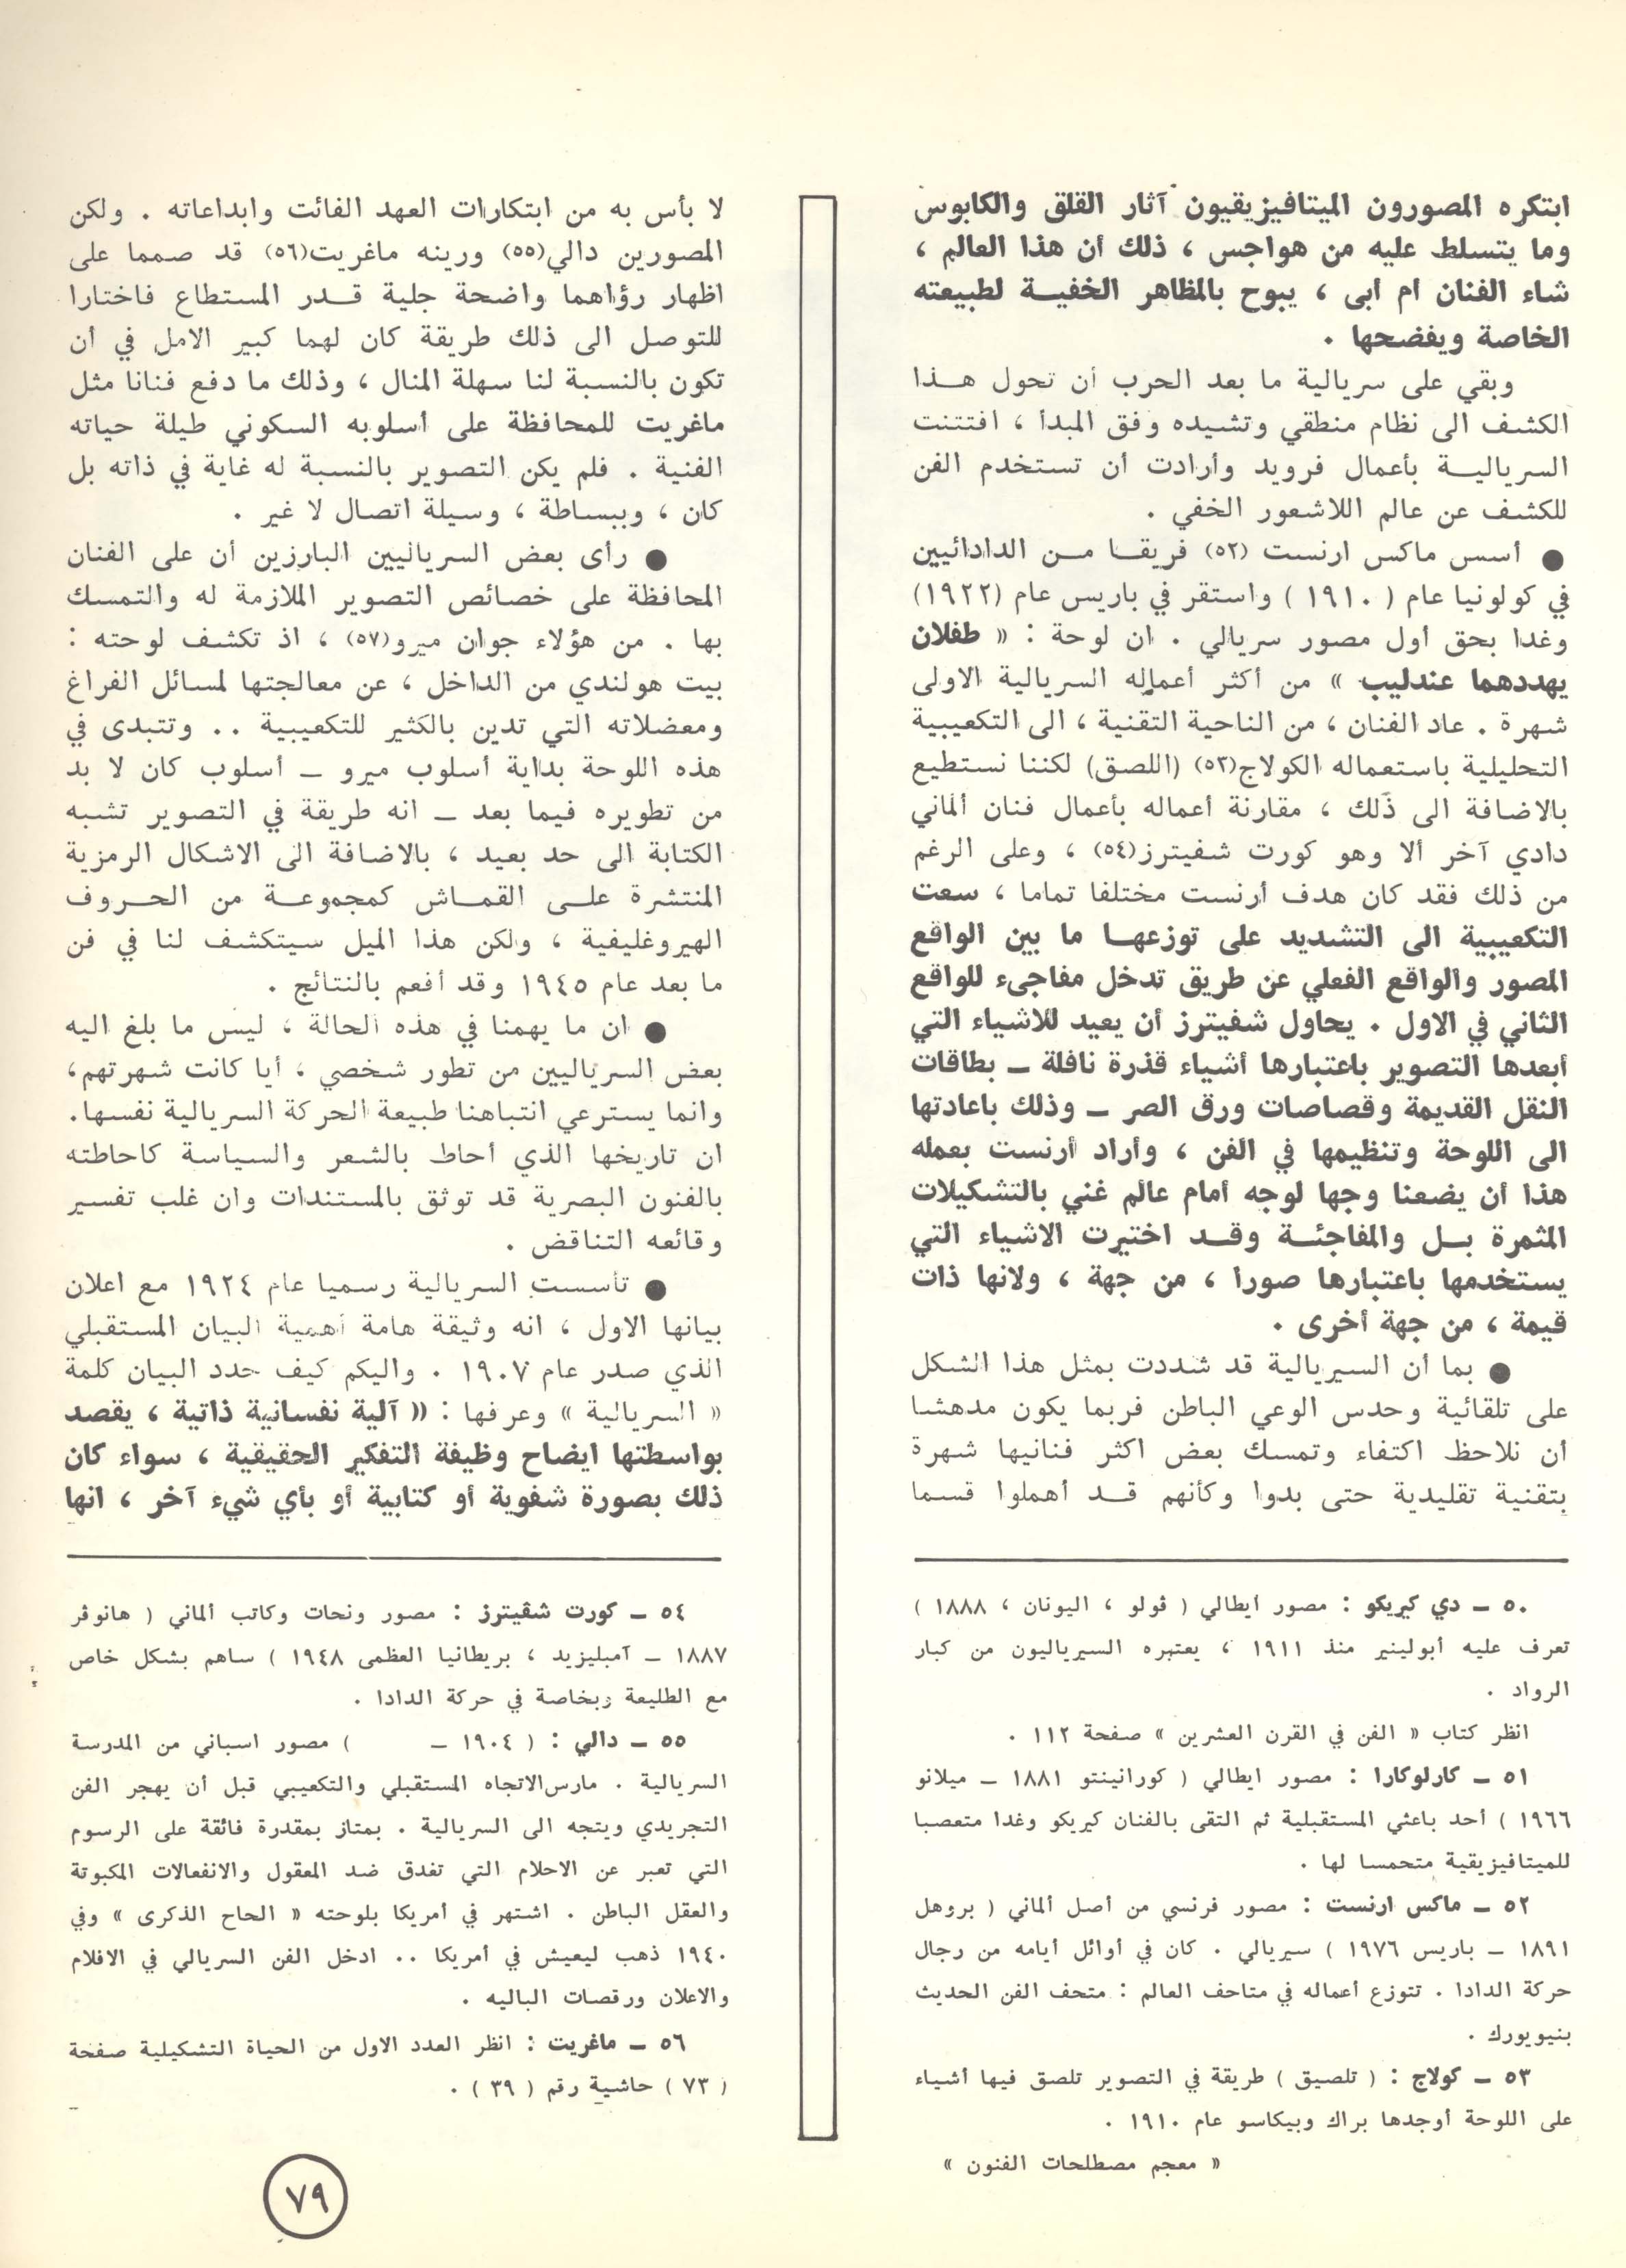 ابتكره المصورون الميتافيزيقيون آثار القلق والكابوس
وما يتسلط عليه من هواجس ، ذلك أن هذا العالم ،
شاء الفنان ام ابى ، يبوح بالمظاهر الخفيـة لطبيعته
الخاصة ويفضحها .
وبقي على سريالية ما بعد الحرب أن تحول هـذا
الكشف الى نظام منطقي وتشيده وفق المبدأ ، افتتنت
السرياليـة بأعمال فرويد وأرادت أن تستخدم الفن
للكشف عن عالم اللاشعور الخفي .
● أسس ماكس ارنست (٥٢) فريقـا مـن الدادائيين
في كولونيا عام ( ١٩١٠ ) واستقر في باريس عام (١٩٢٢)
وغدا بحق أول مصور سريالي . ان لوحة : « طفلان
يهددهما عندليب » من أكثر أعماله السريالية الاولى
شهرة . عاد الفنان ، من الناحية التقنية ، الى التكعيبية
التحليلية باستعماله الكولاج(٥٣) (اللصق) لكننا نستطيع
بالاضافة الى ذلك ، مقارنة أعماله بأعمال فنان ألماني
دادي آخر ألا وهو كورت شفيترز(٥٤) ، وعلى الرغم
من ذلك فقد كان هدف أرنست مختلفا تماما ، سعت
التكعيبية الى التشديد على توزعهـا ما بين الواقع
المصور والواقع الفعلي عن طريق تدخل مفاجىء للواقع
الثاني في الاول . يحاول شفيترز أن يعيد للاشياء التي
أبعدها التصوير باعتبارها أشياء قذرة نافلة ـ بطاقات
النقل القديمة وقصاصات ورق الصر ـ وذلك باعادتها
الى اللوحة وتنظيمها في الفن ، وأراد أرنست بعمله
هذا أن يضعنا وجها لوجه أمام عالم غني بالتشكيلات
المثمرة بـل والمفاجئـة وقـد اختيرت الاشياء التي
يستخدمها باعتبارها صورا ، من جهة ، ولانها ذات
قيمة ، من جهة أخرى .
● بما أن السيريالية قد شددت بمثل هذا الشكل
على تلقائية وحدس الوعي الباطن فربما يكون مدهشا
أن نلاحظ اكتفاء وتمسك بعض اكثر فنانيها شهرة
بتقنية تقليدية حتى بدوا وكأنهم قـد أهملوا قسما
٥٠ ـ دي كيريكو : مصور ايطالي ( ڤولو ، اليونان ، ١٨٨٨ )
تعرف عليه أبولينير منذ ١٩١١ ، يعتبره السيرياليون من كبار
الرواد .
انظر كتاب « الفن في القرن العشرين » صفحة ١١٢ .
٥١ ـ كارلوكارا : مصور ايطالي ( كورانينتو ١٨٨١ ـ ميلانو
١٩٦٦ ) أحد باعثي المستقبلية ثم التقى بالفنان كيريكو وغدا متعصبا
للميتافيزيقية متحمسا لها .
٥٢ ـ ماكس ارنست : مصور فرنسي من أصل ألماني ( بروهل
١٨٩١ ـ باريس ١٩٧٦ ) سيريالي . كان في أوائل أيامه من رجال
حركة الدادا . تتوزع أعماله في متاحف العالم : متحف الفن الحديث
بنيويورك .
٥٣ ـ كولاج : ( تلصيق ) طريقة في التصوير تلصق فيها أشياء
على اللوحة أوجدها براك وبيكاسو عام ١٩١٠ .
« معجم مصطلحات الفنون »
لا بأس به من ابتكارات العهد الفائت وابداعاته . ولكن
المصورين دالي(٥٥) ورينه ماغريت(٥٦) قد صمما على
اظهار رؤاهما واضحة جلية قـدر المستطاع فاختارا
للتوصل الى ذلك طريقة كان لهما كبير الامل في أن
تكون بالنسبة لنا سهلة المنال ، وذلك ما دفع فنانا مثل
ماغريت للمحافظة على أسلوبه السكوني طيلة حياته
الفنية . فلم يكن التصوير بالنسبة له غاية في ذاته بل
كان ، وببساطة ، وسيلة اتصال لا غير .
● رأى بعض السرياليين البارزين أن على الفنان
المحافظة على خصائص التصوير الملازمة له والتمسك
بها . من هؤلاء جوان ميرو(٥٧) ، اذ تكشف لوحته :
بيت هولندي من الداخل ، عن معالجتها لمسائل الفراغ
ومعضلاته التي تدين بالكثير للتكعيبية .. وتتبدى في
هذه اللوحة بداية أسلوب ميرو ـ أسلوب كان لا بد
من تطويره فيما بعد ـ انه طريقة في التصوير تشبه
الكتابة الى حد بعيد ، بالاضافة الى الاشكال الرمزية
المنتشرة علـى القمـاش كمجموعـة من الحـروف
الهيروغليفية ، ولكن هذا الميل سيتكشف لنا في فن
ما بعد عام ١٩٤٥ وقد أفعم بالنتائج .
● ان ما يهمنا في هذه الحالة ، ليس ما بلغ اليه
بعض السرياليين من تطور شخصي ، أيا كانت شهرتهم،
وانما يسترعي انتباهنا طبيعة الحركة السريالية نفسها.
ان تاريخها الذي أحاط بالشعر والسياسة كاحاطته
بالفنون البصرية قد توثق بالمستندات وان غلب تفسير
وقائعه التناقض .
● تأسست السريالية رسميا عام ١٩٢٤ مع اعلان
بيانها الاول ، انه وثيقة هامة أهمية البيان المستقبلي
الذي صدر عام ١٩٠٧ . واليكم كيف حدد البيان كلمة
« السريالية » وعرفها : « آلية نفسانية ذاتية ، يقصد
بواسطتها ايضاح وظيفة التفكير الحقيقية ، سواء كان
ذلك بصورة شفوية أو كتابية أو بأي شيء آخر ، انها
٥٤ ـ كورت شڤيترز : مصور ونحات وكاتب ألماني ( هانوڤر
١٨٨٧ ـ آمبليزيد ، بريطانيا العظمى ١٩٤٨ ) ساهم بشكل خاص
مع الطليعة وبخاصة في حركة الدادا .
٥٥ ـ دالي : ( ١٩٠٤ ـ ) مصور اسباني من المدرسة
السريالية . مارس الاتجاه المستقبلي والتكعيبي قبل أن يهجر الفن
التجريدي ويتجه الى السريالية . يمتاز بمقدرة فائقة على الرسوم
التي تعبر عن الاحلام التي تغدق ضد المعقول والانفعالات المكبوتة
والعقل الباطن . اشتهر في أمريكا بلوحته « الحاح الذكرى » وفي
١٩٤٠ ذهب ليعيش في أمريكا .. ادخل الفن السريالي في الافلام
والاعلان ورقصات الباليه .
٥٦ ـ ماغريت : انظر العدد الاول من الحياة التشكيلية صفحة
( ٧٣ ) حاشية رقم ( ٣٩ ) .
٧٩